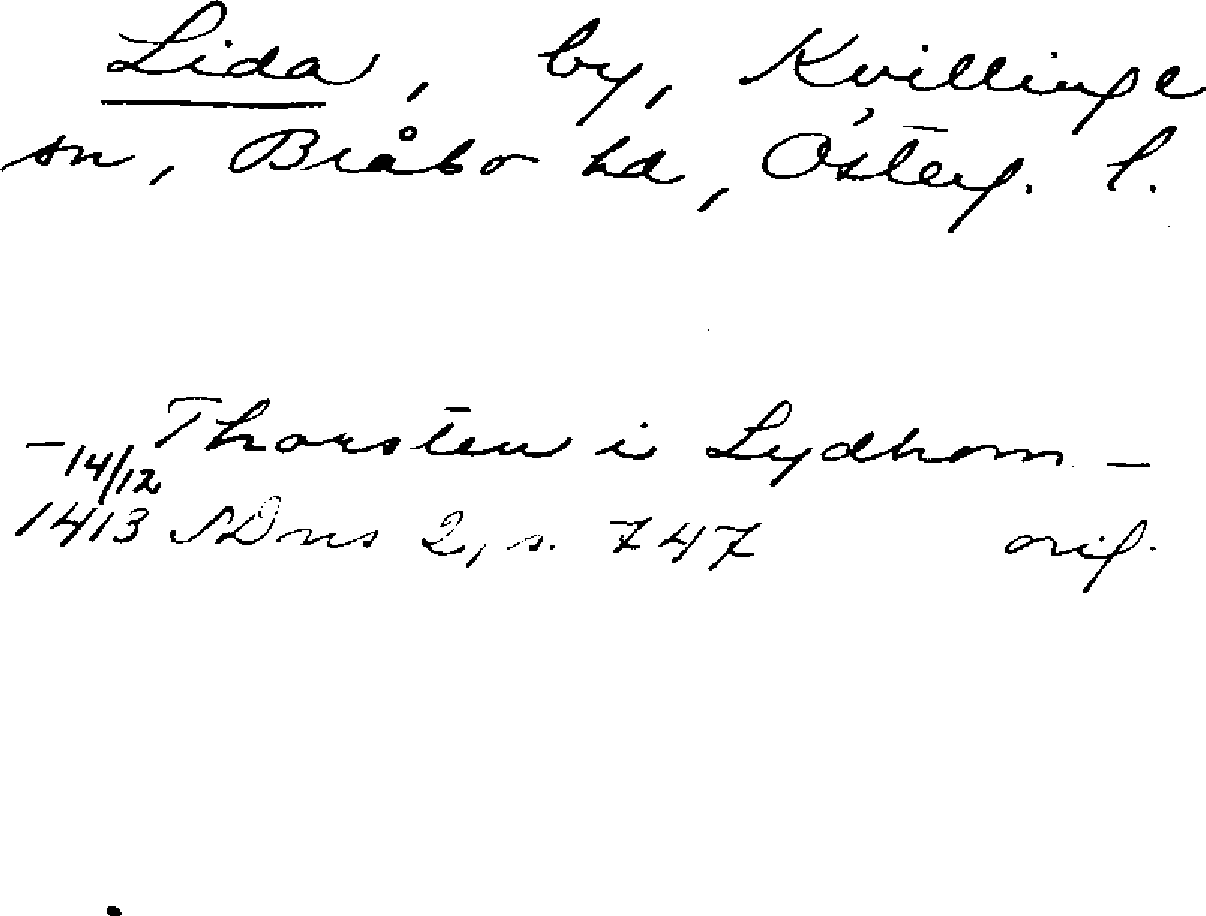 Lida, by, Kvillinge
sn, Bråbo hd, Österg. l.
– Thorsten i Lydhom –
14/12
1413 SDns 2, s. 747 orig.